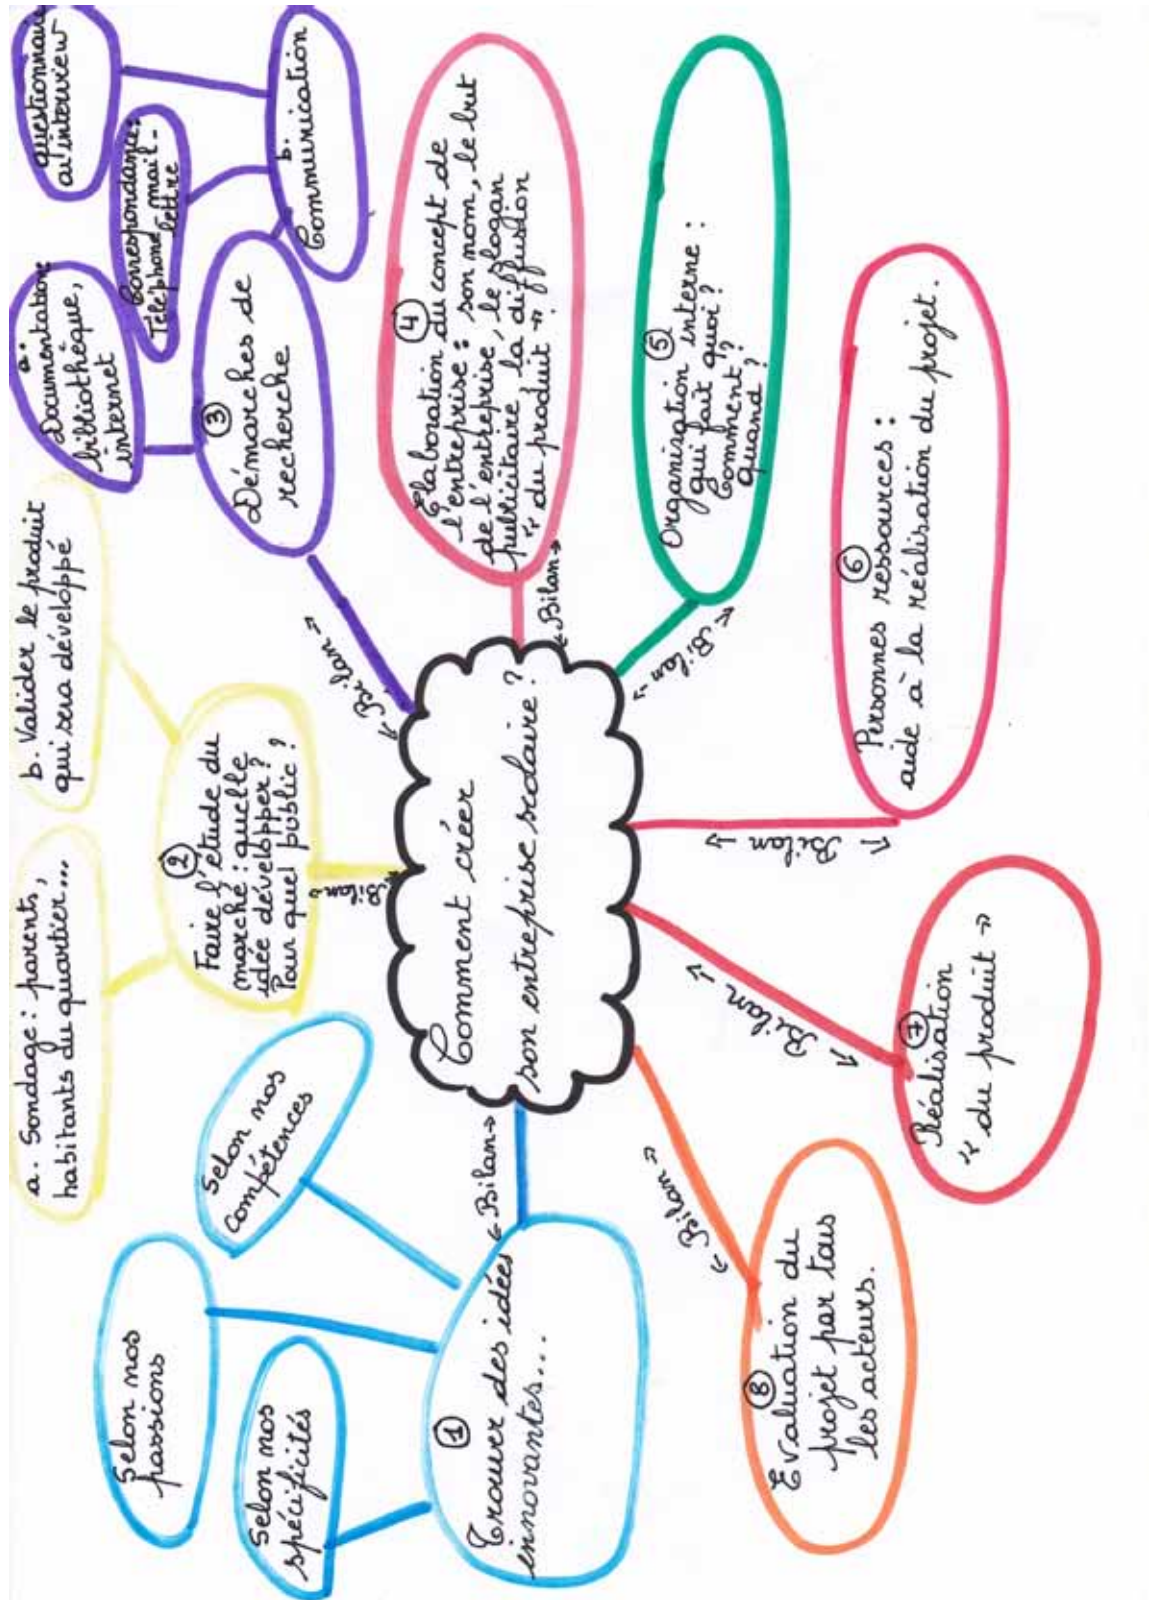 Comment créer
son entreprise scolaire ?
← Bilan →
①
Trouver des idées
innovantes...
Selon nos
spécificités
Selon nos
passions
Selon nos
compétences
← Bilan →
②
Faire l'étude du
marché : quelle
idée développer ?
Pour quel public ?
a. Sondage : parents,
habitants du quartier...
b. Valider le produit
qui sera développé
← Bilan →
③
Démarches de
recherche
a.
Documentation :
bibliothèque,
internet
b.
Communication
Correspondance :
Téléphone - mail -
lettre
questionnaire
interview
← Bilan →
④
Élaboration du concept de
l'entreprise : son nom, le but
de l'entreprise, le slogan
publicitaire, la diffusion
" du produit ".
← Bilan →
⑤
Organisation interne :
qui fait quoi ?
Comment ?
quand ?
← Bilan →
⑥
Personnes ressources :
aide à la réalisation du projet.
← Bilan →
⑦
Réalisation
" du produit "
← Bilan →
⑧
Evaluation du
projet par tous
les acteurs.